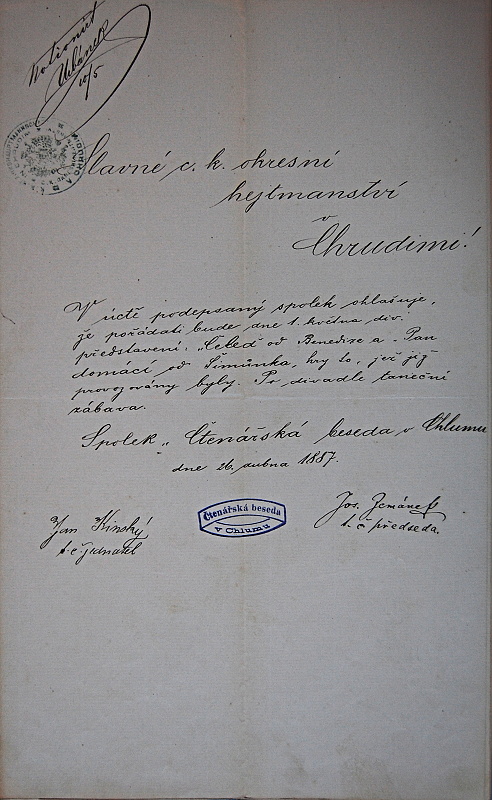 Urbánek
10/5
Slavné c. k. okresní
hejtmanství
v
Chrudimi!
V úctě podepsaný spolek ohlašuje,
že pořádati bude dne 1. května div.
představení, "Čeleď" od Benedixe a "Pan
domácí od Šimůnka, hry to, jež již
provozovány byly. Po divadle taneční
zábava.
Spolek "Čtenářská beseda v Chlumu
dne 26. dubna 1887.
Čtenářská beseda
v Chlumu
Jos. Zemánek
t. č. předseda.
Jan Kinský
t. č. jednatel